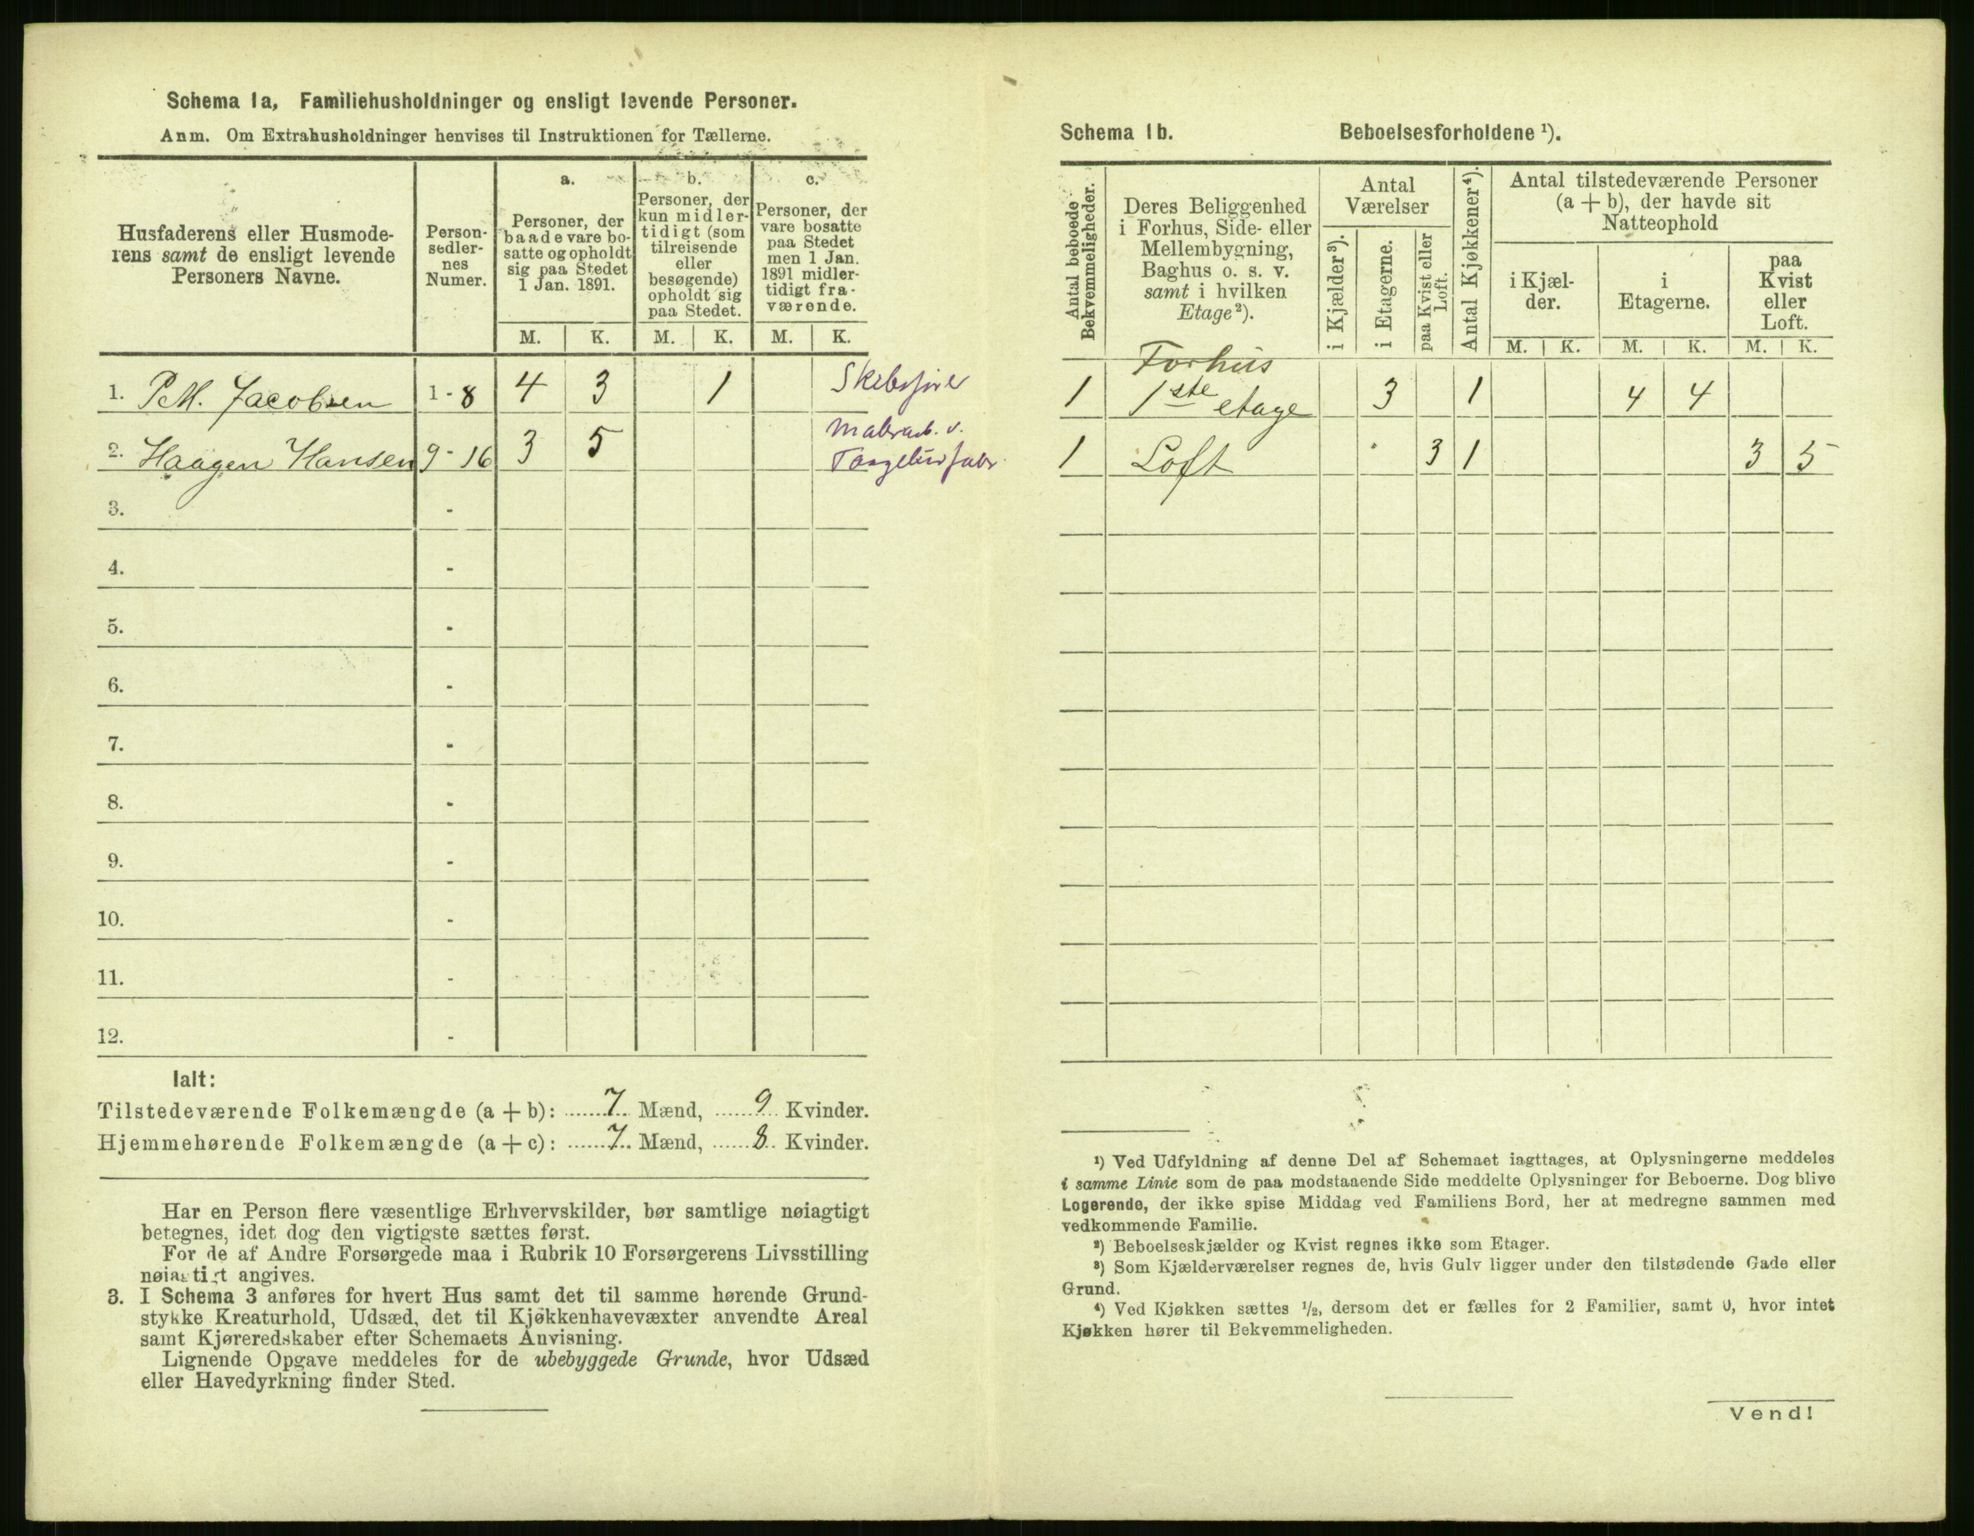 Schema 1a, Familiehusholdninger og ensligt levende Personer.
Anm. Om Extrahusholdninger henvises til Instruktionen for Tællerne.
Husfaderens eller Husmoderens samt de ensligt levende Personers Navne.
Personsedlernes Numer.
a.
Personer, der baade vare bosatte og opholdt sig paa Stedet 1 Jan. 1891.
b.
Personer, der kun midlertidigt (som tilreisende eller besøgende) opholdt sig paa Stedet.
c.
Personer, der vare bosatte paa Stedet men 1 Jan. 1891 midlertidigt fraværende.
M. K. M. K. M. K.
1. P.M. Jacobsen 1 - 8 4 3 1 Skibsfører
2. Haagen Hansen 9 - 16 3 5 Malerarb. v.
3. -
4. -
5. -
6. -
7. -
8. -
9. -
10. -
11. -
12. -
Ialt:
Tilstedeværende Folkemængde (a + b): 7 Mænd, 9 Kvinder.
Hjemmehørende Folkemængde (a + c): 7 Mænd, 8 Kvinder.
Har en Person flere væsentlige Erhvervskilder, bør samtlige nøiagtigt
betegnes, idet dog den vigtigste sættes først.
For de af Andre Forsørgede maa i Rubrik 10 Forsørgerens Livsstilling
nøiagtigt angives.
3. I Schema 3 anføres for hvert Hus samt det til samme hørende Grund-
stykke Kreaturhold, Udsæd, det til Kjøkkenhavevæxter anvendte Areal
samt Kjøreredskaber efter Schemaets Anvisning.
Lignende Opgave meddeles for de ubebyggede Grunde, hvor Udsæd
eller Havedyrkning finder Sted.
Schema 1b. Beboelsesforholdene ¹).
Antal beboede Bekvemmeligheder.
Deres Beliggenhed i Forhus, Side- eller Mellembygning, Baghus o. s. v. samt i hvilken Etage ²).
Antal Værelser
i Kjælder ³).
i Etagerne.
paa Kvist eller Loft.
Antal Kjøkkener ⁴).
Antal tilstedeværende Personer (a + b), der havde sit Natteophold
i Kjælder.
i Etagerne.
paa Kvist eller Loft.
M. K. M. K. M. K.
1 Forhus 1ste etage 3 1 4 4
1 Loft 3 1 3 5
¹) Ved Udfyldning af denne Del af Schemaet iagttages, at Oplysningerne meddeles
i samme Linie som de paa modstaaende Side meddelte Oplysninger for Beboerne. Dog blive
Logerende, der ikke spise Middag ved Familiens Bord, her at medregne sammen med
vedkommende Familie.
²) Beboelseskjælder og Kvist regnes ikke som Etager.
³) Som Kjælderværelser regnes de, hvis Gulv ligger under den tilstødende Gade eller
Grund.
⁴) Ved Kjøkken sættes ½, dersom det er fælles for 2 Familier, samt 0, hvor intet
Kjøkken hører til Bekvemmeligheden.
Vend!